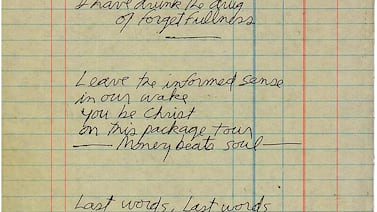 I have drunk the drug
of forgetfullness
Leave the informed sense
in our wake
you be Christ
on this package tour
— Money beats soul —
Last words, Last words